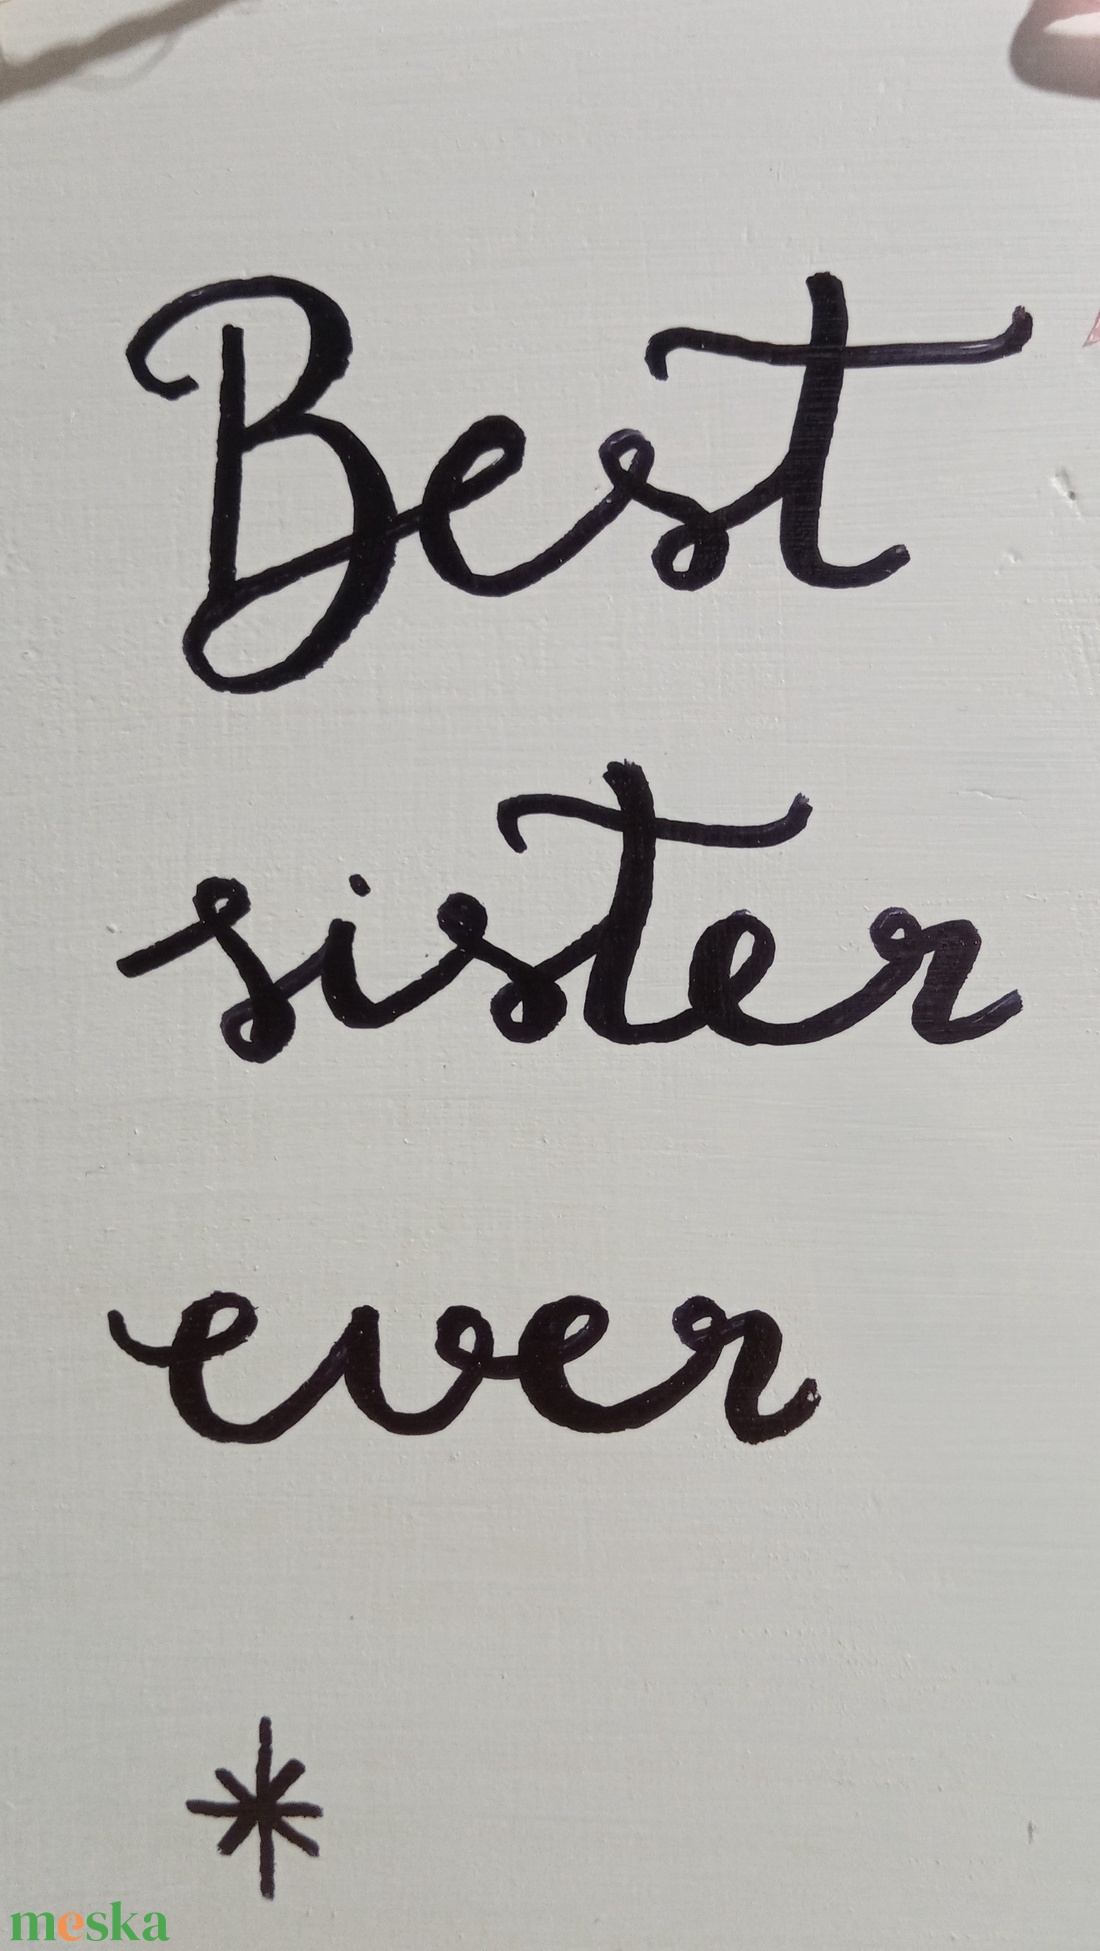 Best
sister
ever
meska